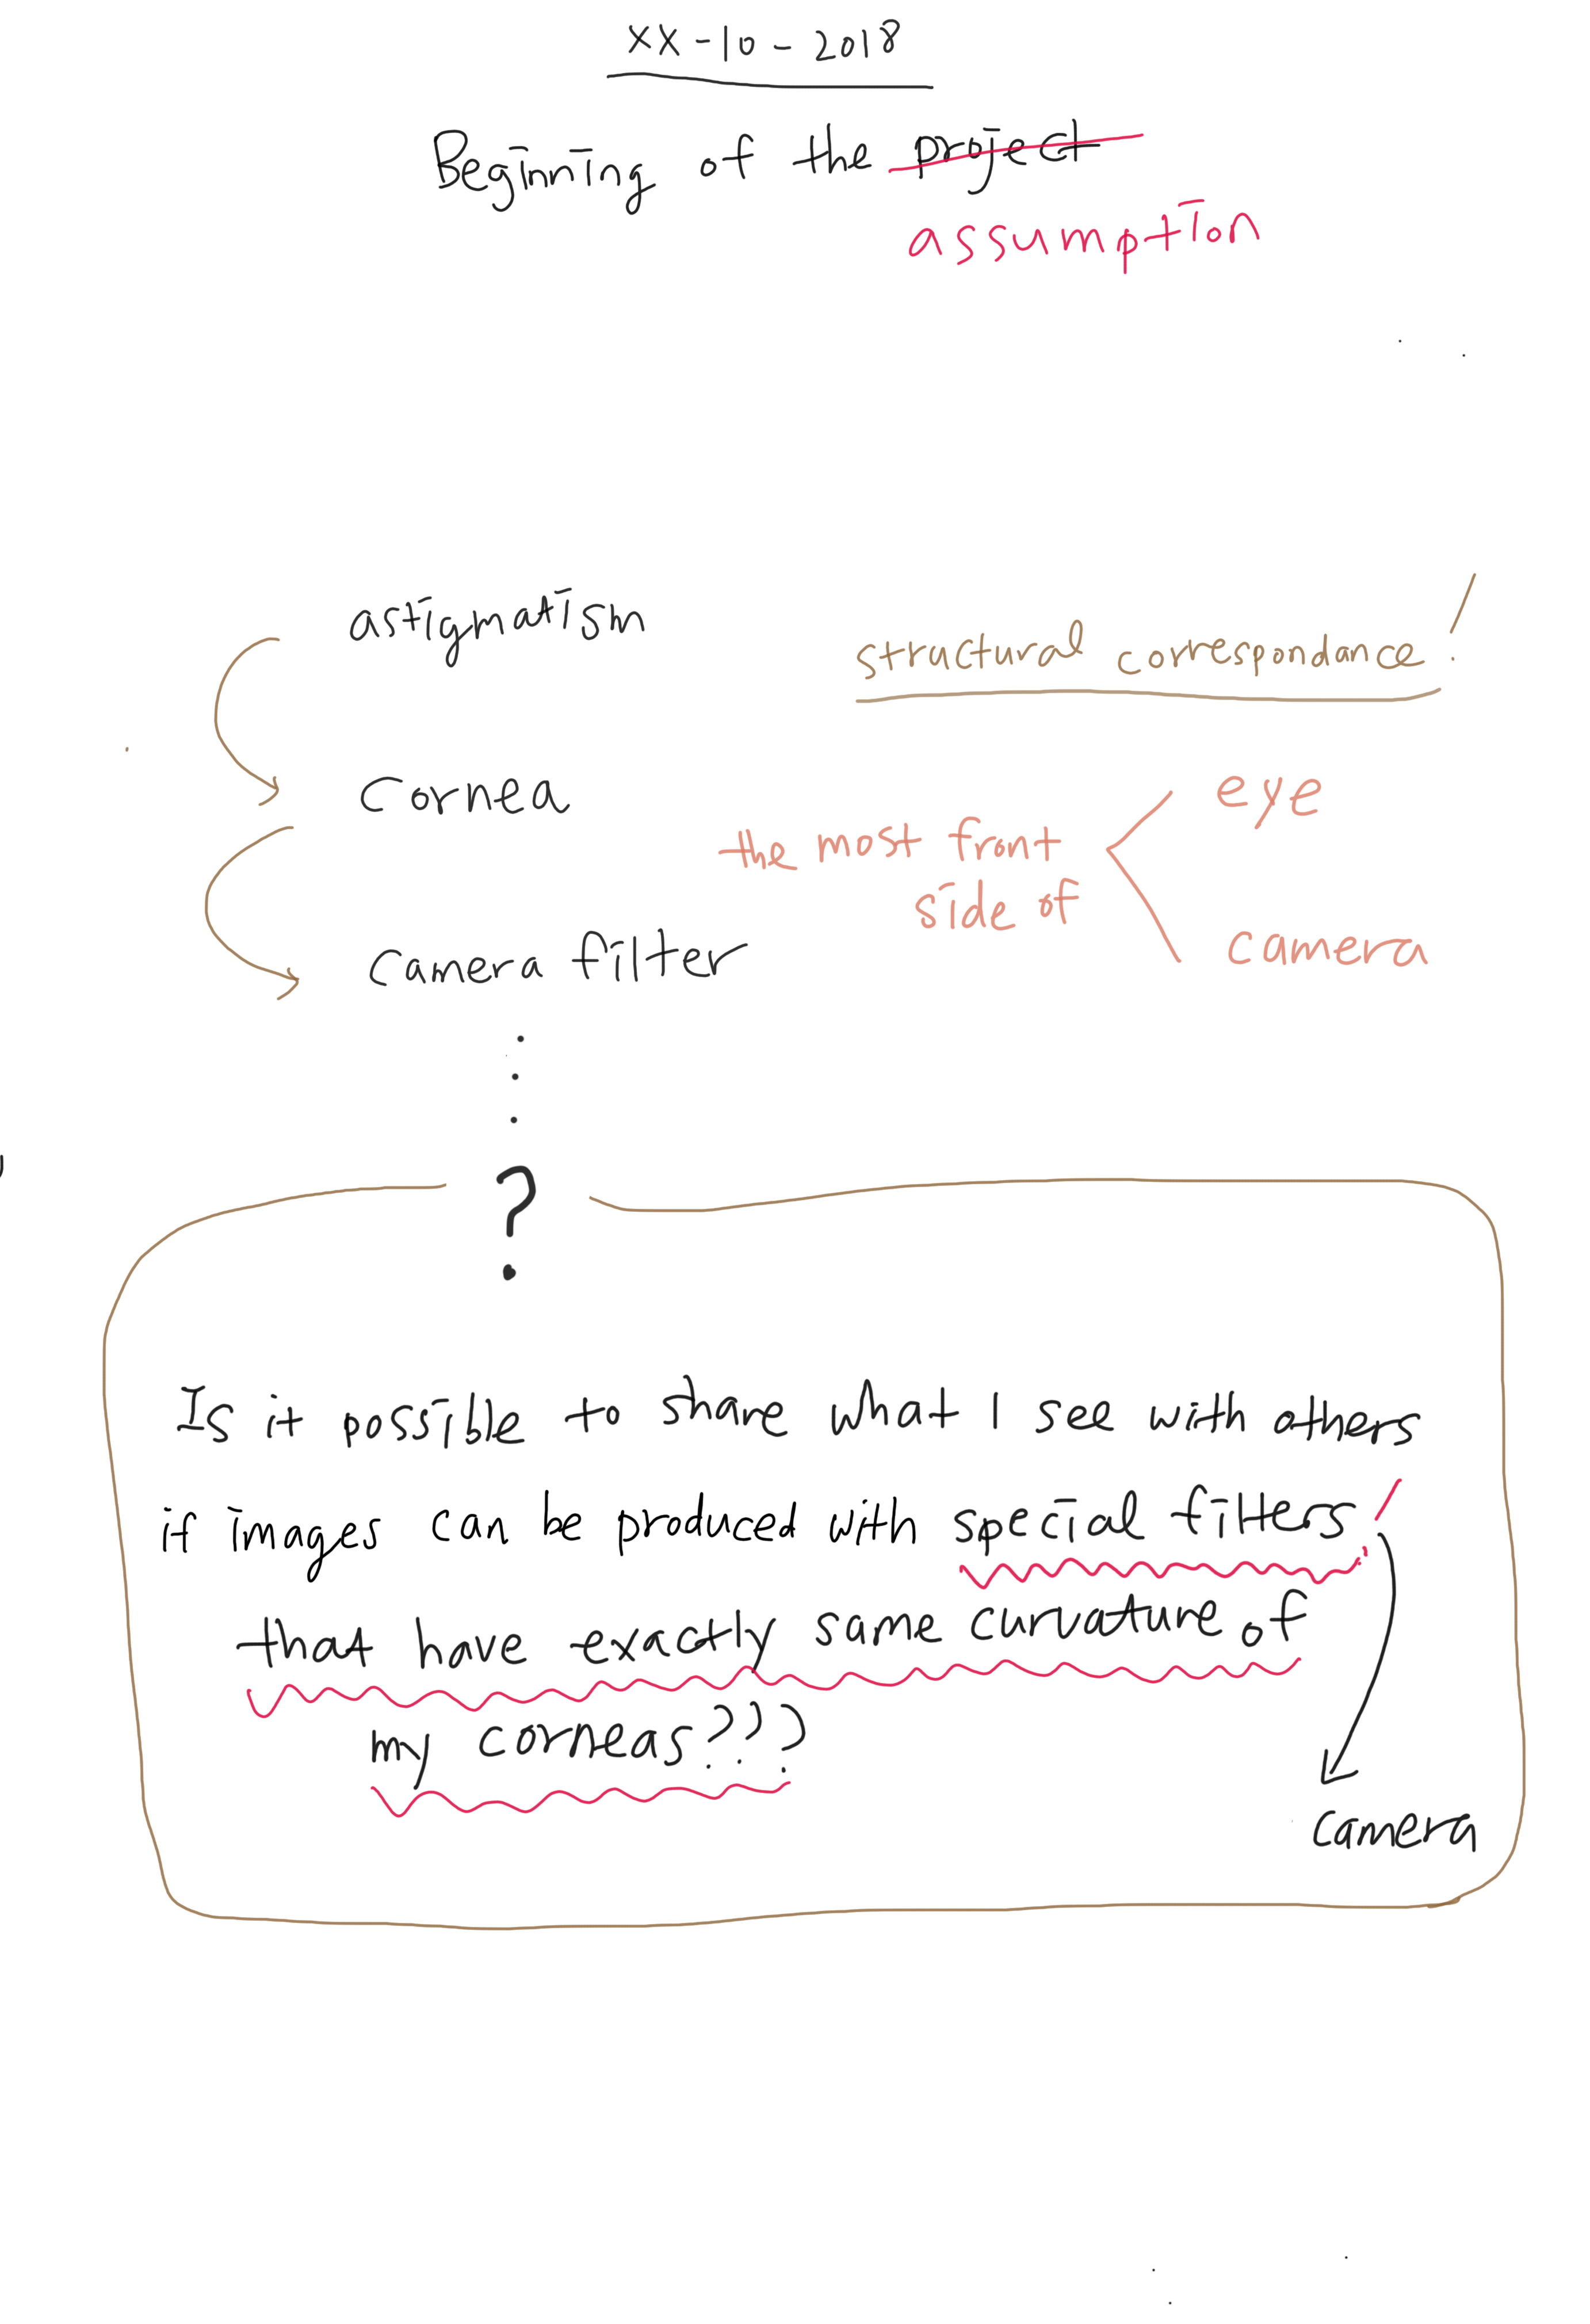 XX-10-2018
Beginning of the prject
assumption
astigmatism
structural correspondance!
cornea
eye
the most front
side of
camera
camera filter
?
Is it possible to share what I see with others
if images can be produced with special filters!
that have exactly same curvature of
my corneas???
camera